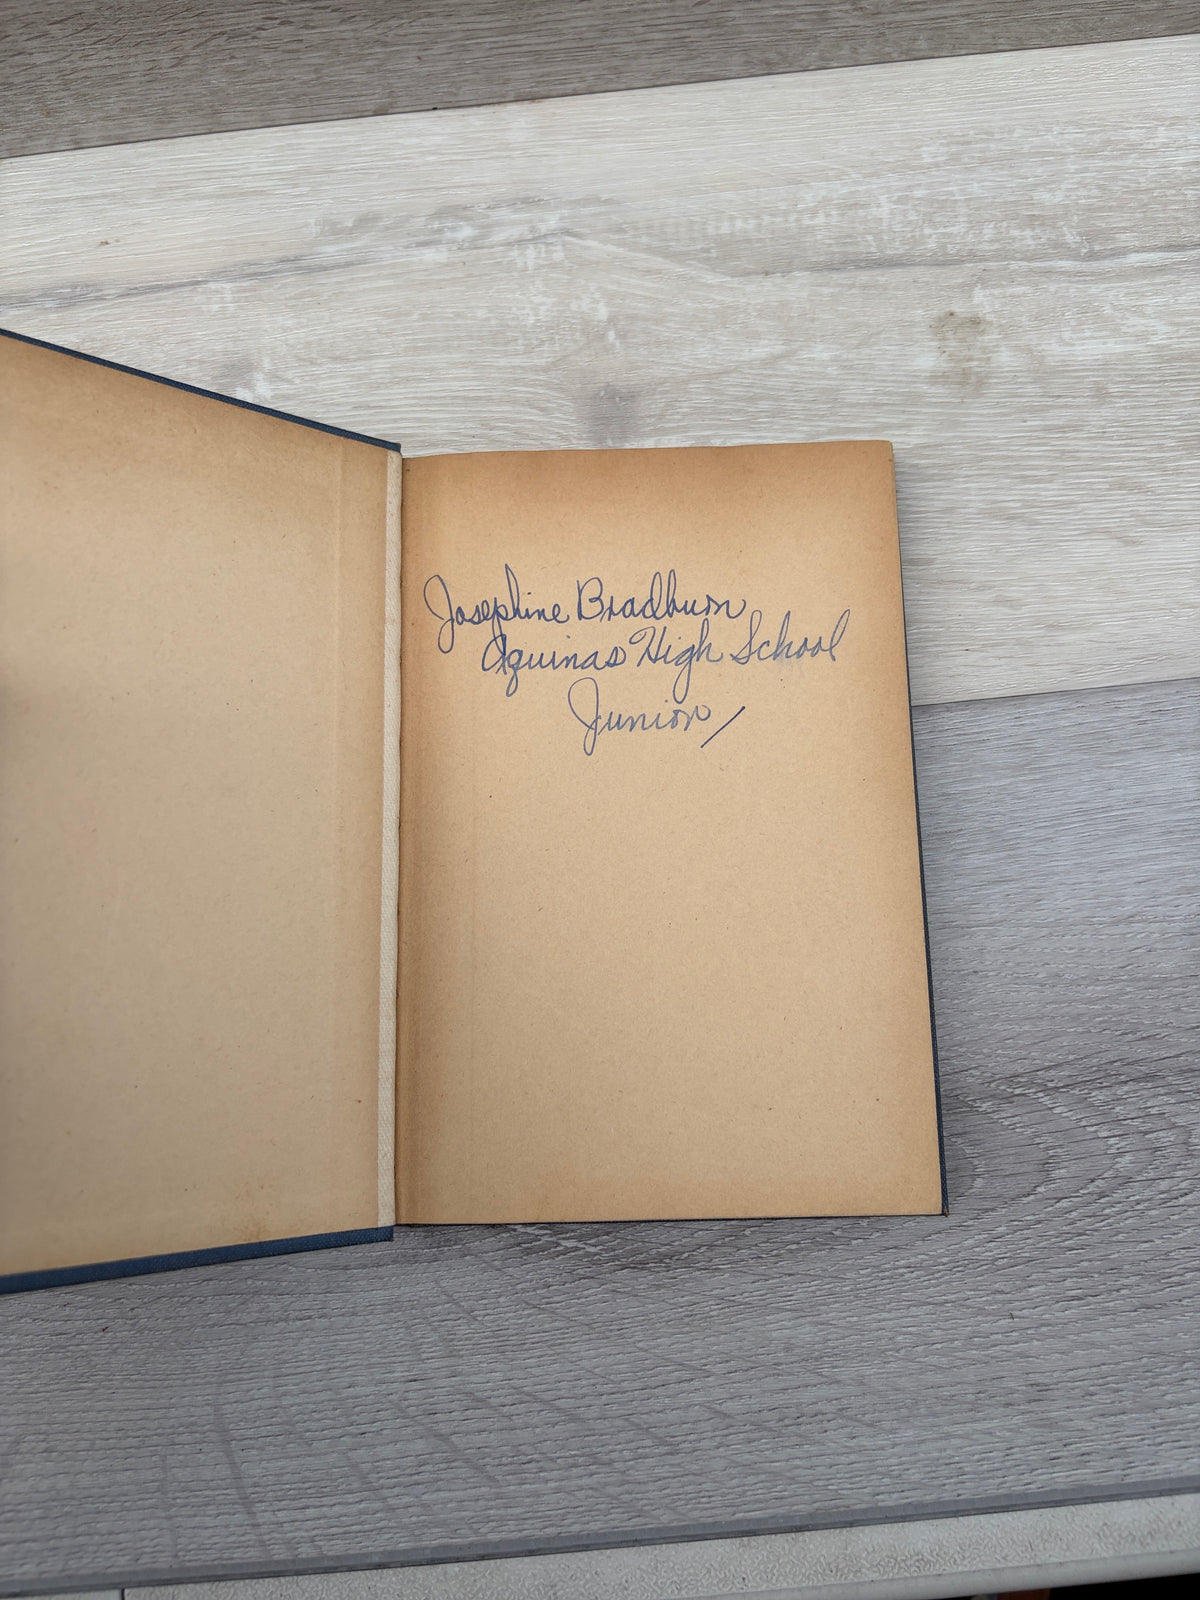 Josephine Bradburn
Aquinas High School
Junior/